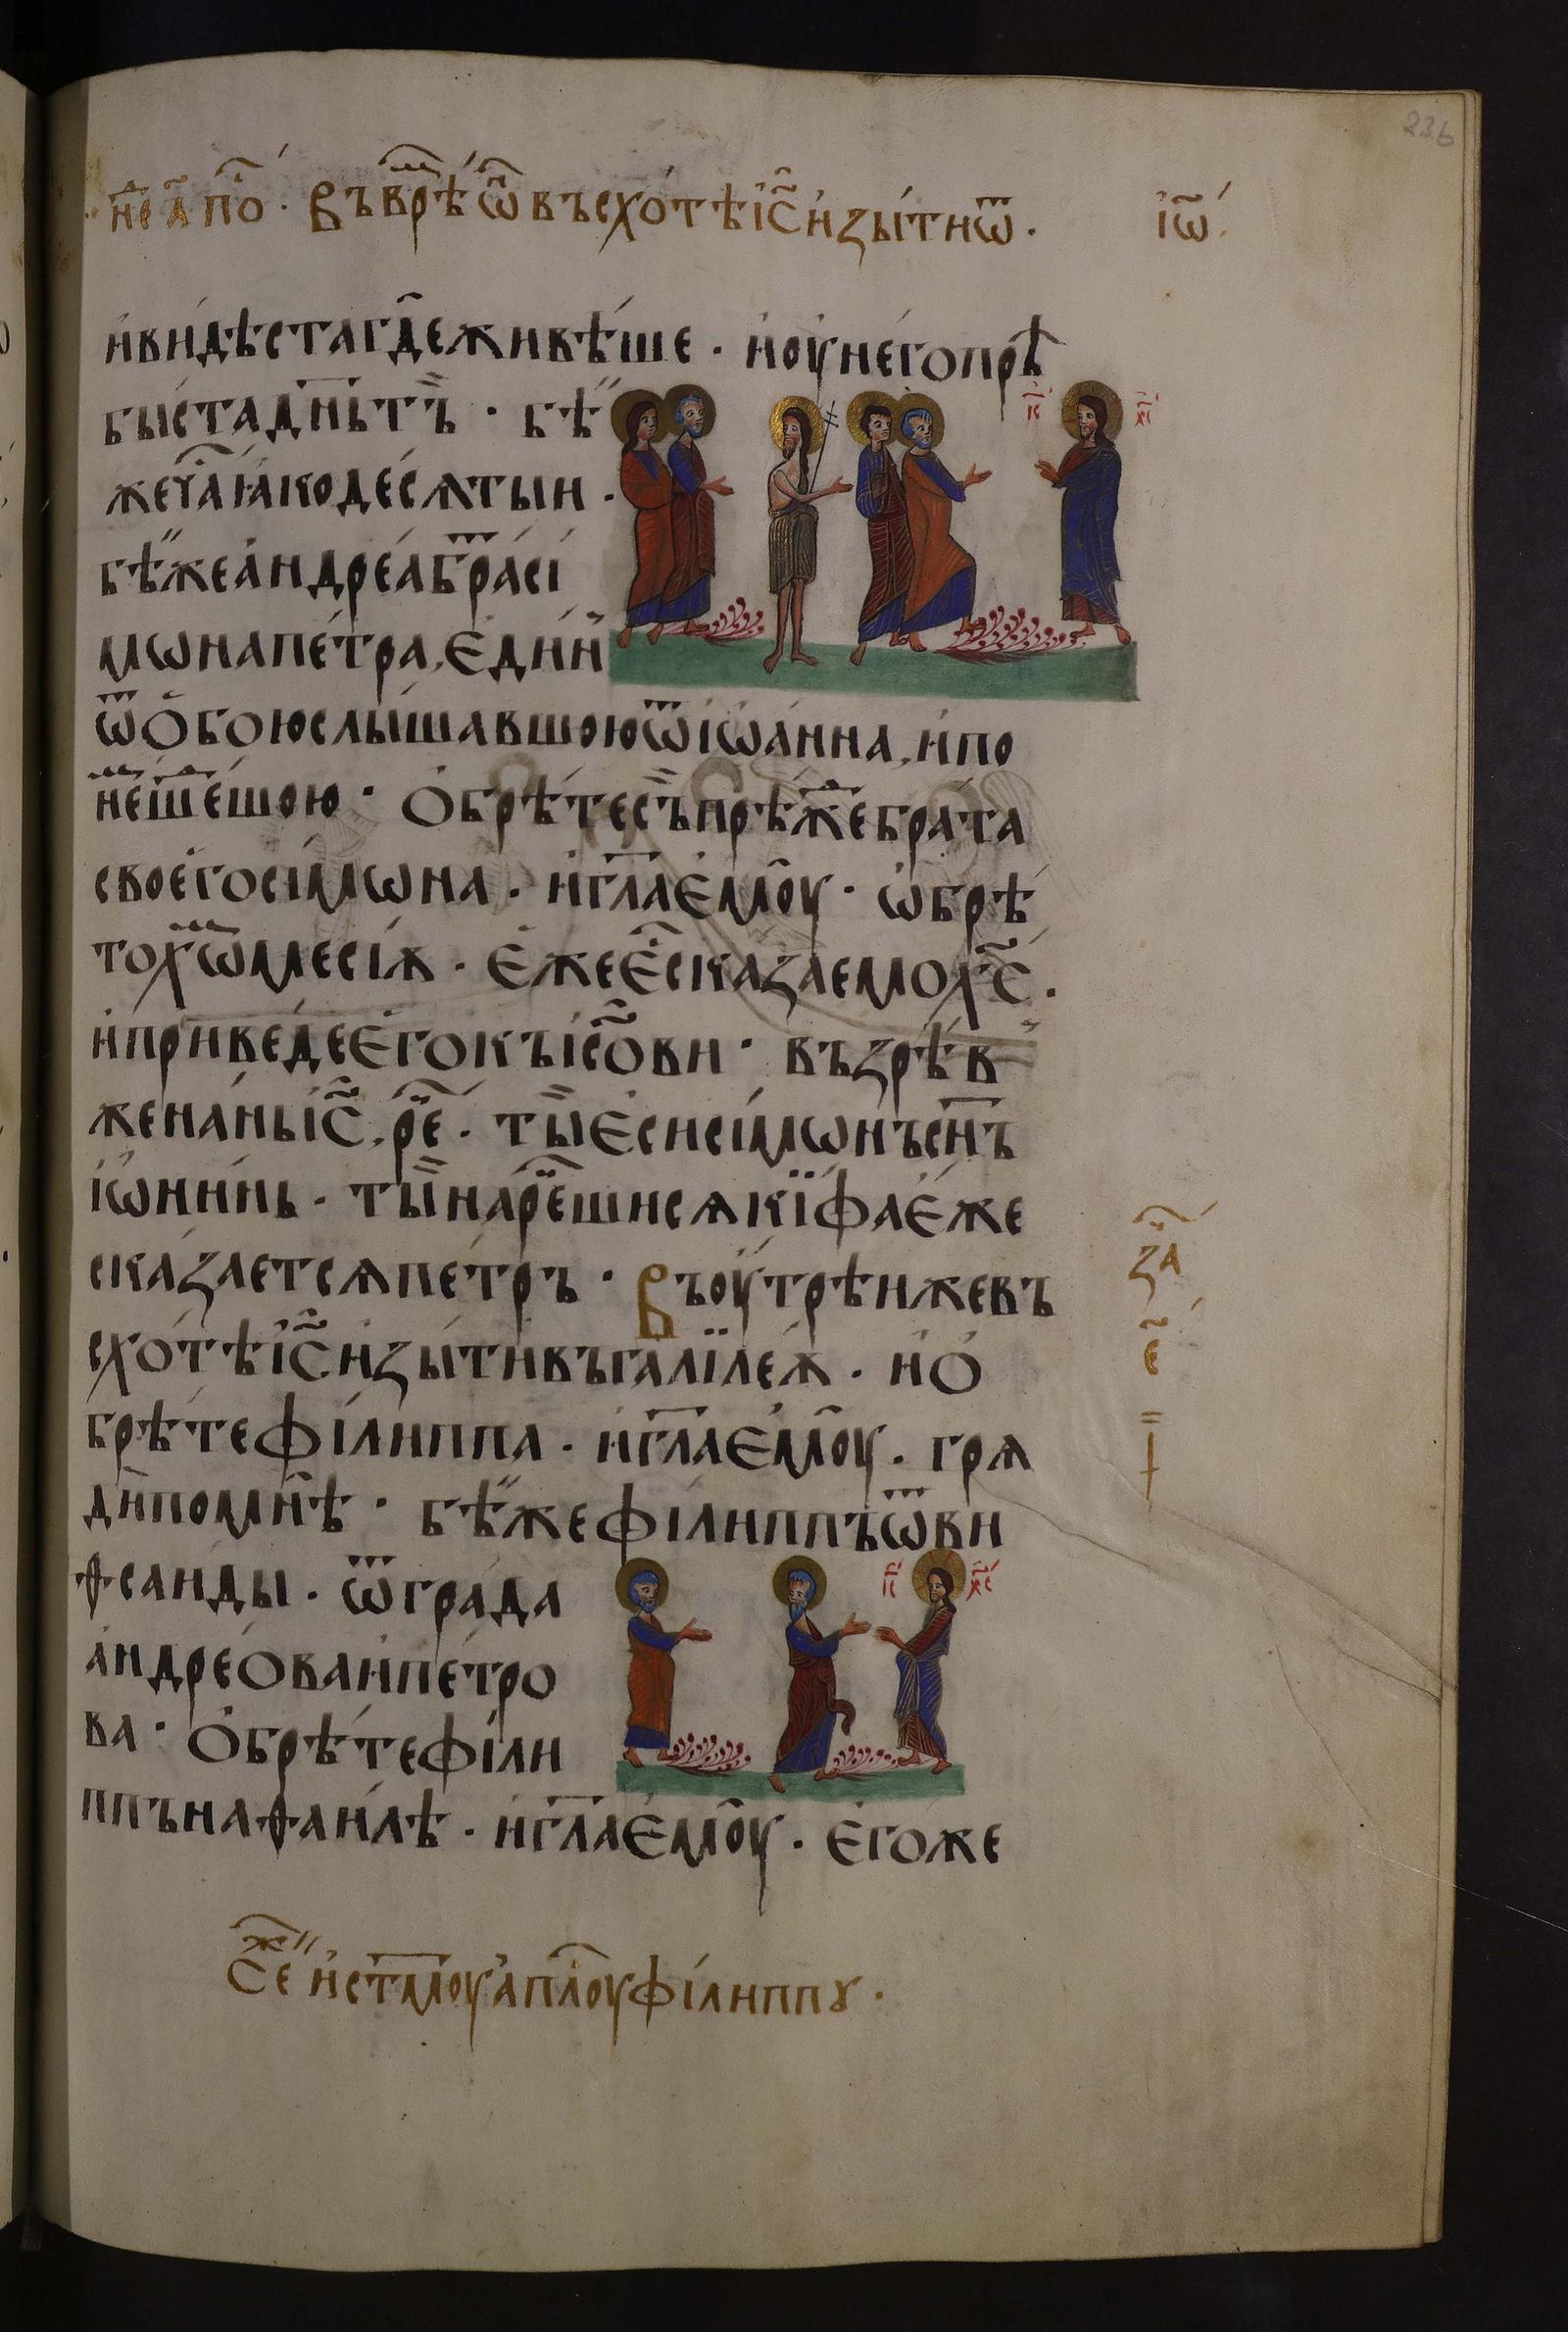 не҃ а҃ по҇. Въ врѣ́ ѡ҆́н въсхо́тѣ і҆с҃ и҆зы́ти ѿ. і҆ѡ҃
и҆ви́дѣстагдежнвѣ́ше. и҆ оу҆него̀прѣ
бы́стадн҃ьтъ̏. бѣ̏
жечⷭ҇а ꙗ҆́кодесѧтыи.
бѣ̏жеа҆ндре́абра́сі
мѡнапе́тра, Є҆ди́н
ѿо҆бо́юслы́шавшоюѿі҆ѡа́нна, и҆по
не́мше́шою. Ѻ҆брѣ́тесъ̏прѣ́ждебра́та
своего̀сі́мѡна. и҆гл҃аємоу. ѡ҆брѣ
то́хѡммесі́ѫ. є҆́жеє҆́сказа́емох҃с.
и҆приведе́є҆гокъі҆сⷭ҇ови. възрѣ́в
жена́ньі҆с҃, рече. ты̏є҆сисі́мѡнъсн҃ъ
і҆ѡ́нинь. ты̏наре́чешисѧкїфає҆́же
сказа́етсѧпе́тръ. Въоу҆́трѣижевъ
схо́тѣі҆с҃и҆зы́тивъгалїле́ѫ. и҆ѻ҆
брѣ́тефі́липпа. и҆гл҃аємоу. грѧ
ди̏помнѣ̀. бѣ̏жефі́липпъѿви
ѳсаи́ды. ѿгра́да
а҆ндре́ѻваи҆пе́тро
ва. Ѻ҆брѣ́тефі́ли
ппънаѳанаи́лѣ. и҆гл҃аємоу. є҆го́же
за
є҃
Сⷤе и҆ ст҃моу а҆пⷭ҇лоу фі́липпꙋ.
і҃с х҃с
і҃с х҃с
236